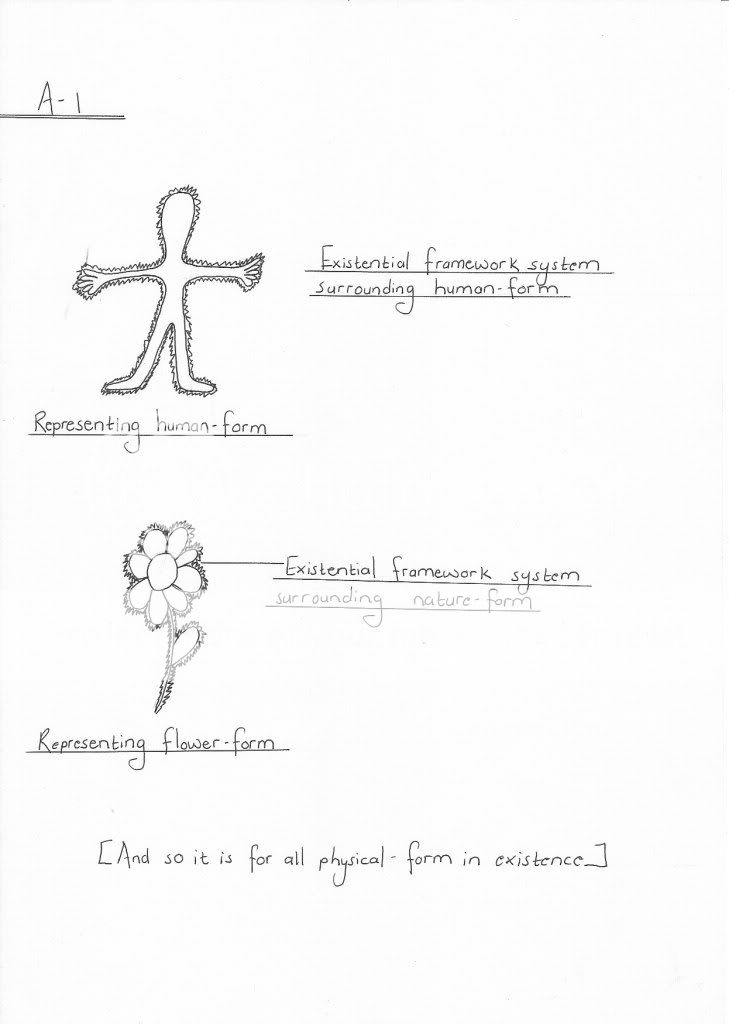 A-1
Existential framework system
surrounding human-form
Representing human-form
Existential framework system
surrounding nature-form
Representing flower-form
[And so it is for all physical-form in existence]